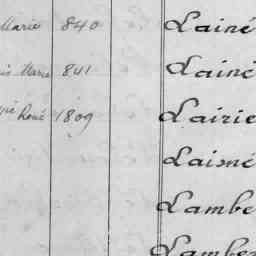 Marie 840 Lainé
is Marie 841 Lainé
René 1809 Lairie
Laisné
Lambe
Lambe